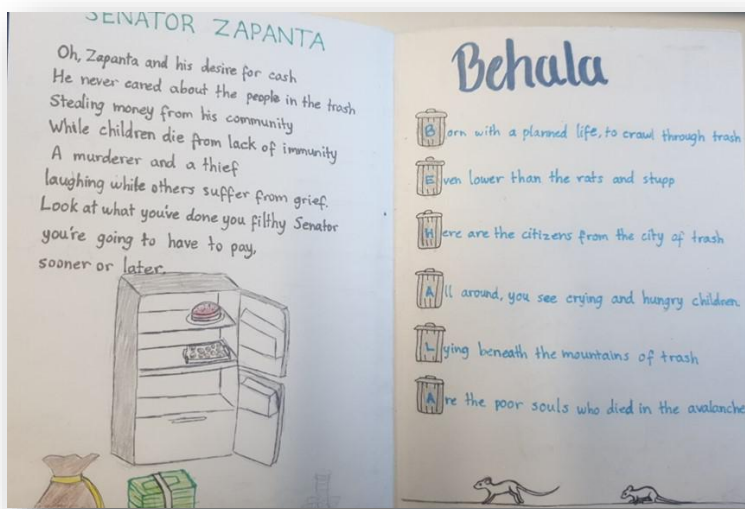 SENATOR ZAPANTA
Oh, Zapanta and his desire for cash
He never cared about the people in the trash
Stealing money from his community
While children die from lack of immunity
A murderer and a thief
laughing while others suffer from grief.
Look at what you've done you filthy Senator
you're going to have to pay,
sooner or later.
Behala
Born with a planned life, to crawl through trash
Even lower than the rats and stupp
Here are the citizens from the city of trash
All around, you see crying and hungry children
Lying beneath the mountains of trash
Are the poor souls who died in the avalanche